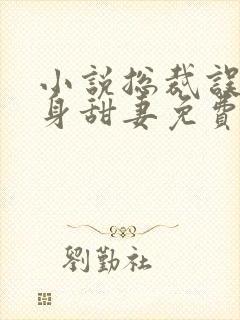 小說總裁誤
身甜妻免費
劉勤社